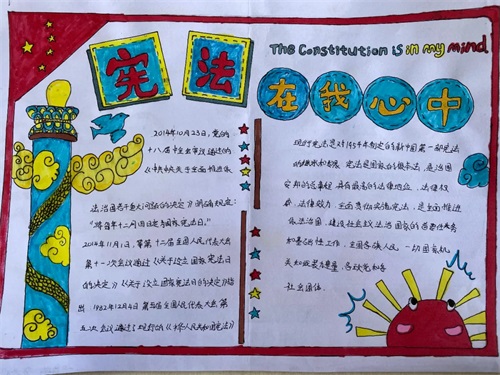 宪法
The Constitution is in my mind
在我心中
2014年10月23日,党的
十八届中全会审议通过的
《中共中央关于全面推进依
法治国若干重大问题的决定》的确规定:
"将每年十二月四日定为国家宪法日。"
2014年11月1日,第十二届全国人民代表大会
第十一次会议通过《关于设立国家宪法日
的决定》《关于设立国家宪法日的决定》指
出,1982年12月4日第五届全国人民代表大会第
五次会议通过了现行的《中华人民共和国宪法》
现行宪法是对1954年制定的新中国第一部宪法
的继承和发展。宪法是国家的根本法,是治国
安邦的总章程,具有最高的法律地位、法律权
威、法律效力。全面贯彻实施宪法,是全面推进
依法治国、建设社会主义法治国家的首要任务
和基础性工作。全国各族人民、一切国家机
关和武装力量、各政党和各
社会团体